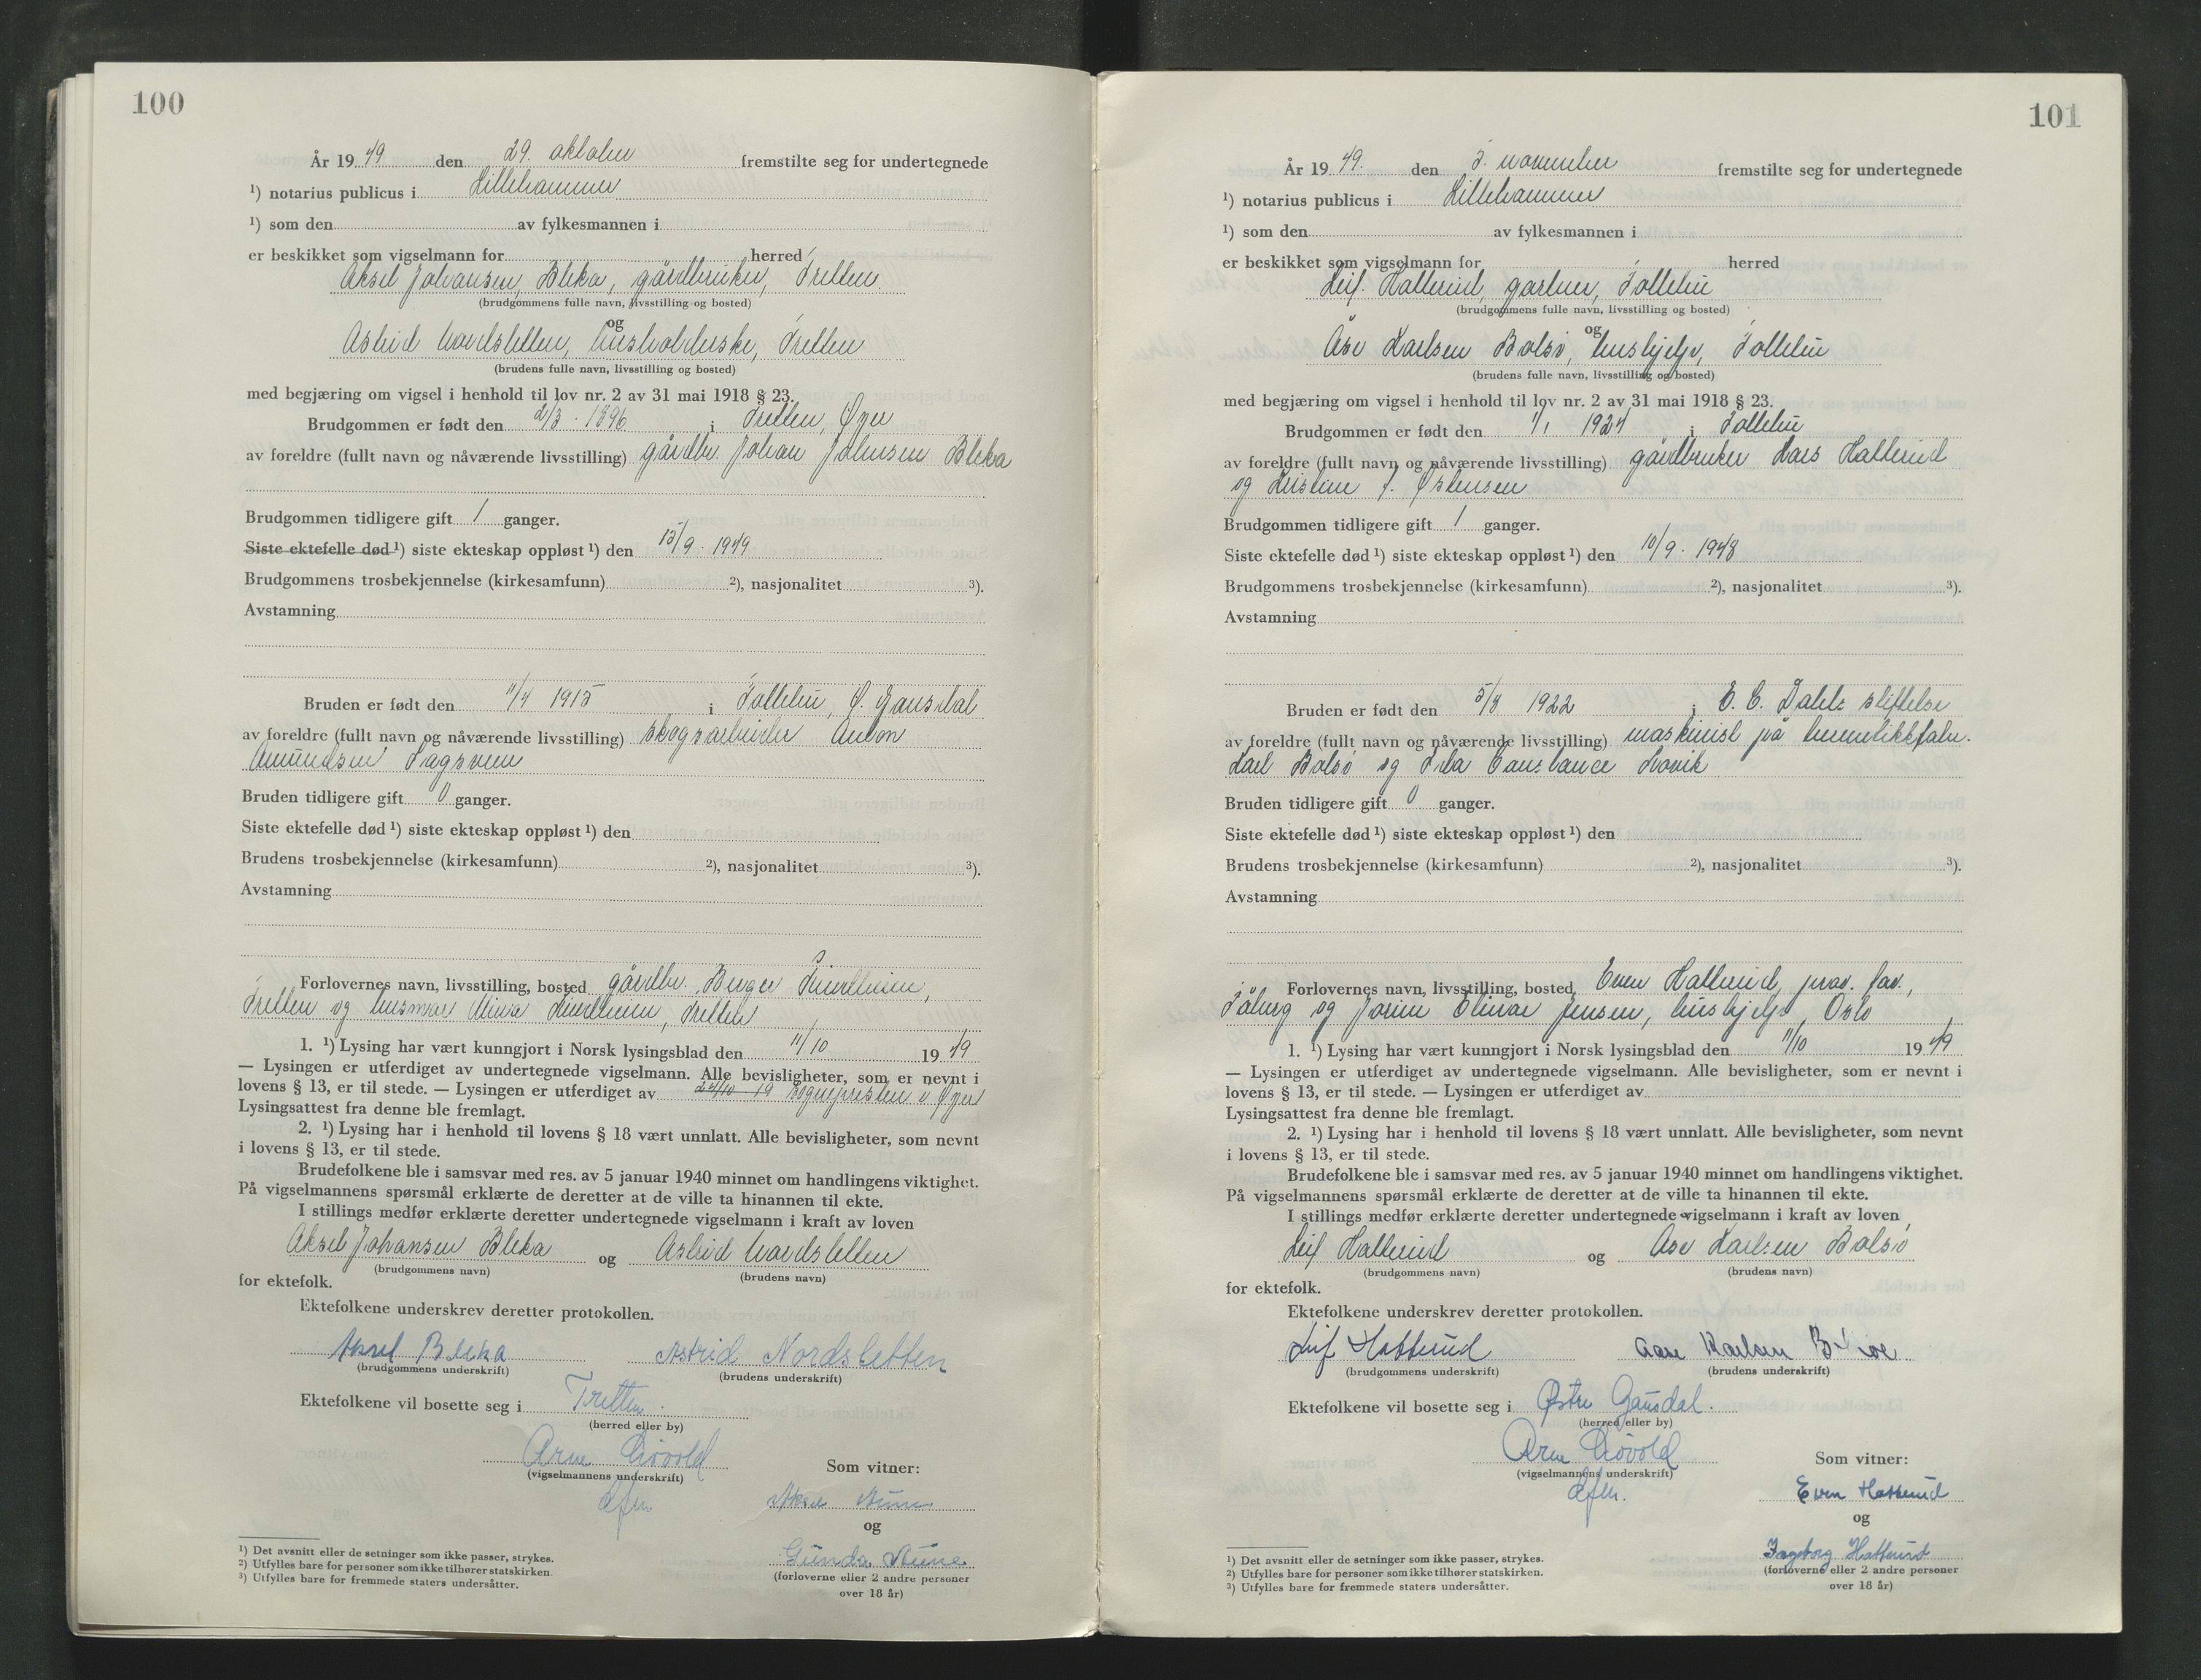 100
År 19 49 den 29. oktober fremstilte seg for undertegnede
¹) notarius publicus i Lillehammer
¹) som den av fylkesmannen i
er beskikket som vigselmann for herred
Aksel Johansen Bleka, gårdbruker, Tretten
(brudgommens fulle navn, livsstilling og bosted)
og
Astrid Nordsletten, husholderske, Tretten
(brudens fulle navn, livsstilling og bosted)
med begjæring om vigsel i henhold til lov nr. 2 av 31 mai 1918 § 23.
Brudgommen er født den 2/3 1896 i Tretten, Øyer
av foreldre (fullt navn og nåværende livsstilling) gårdbr. Johan Johnsen Bleka
Brudgommen tidligere gift 1 ganger.
Siste ektefelle død ¹) siste ekteskap oppløst ¹) den 15/9 1949
Brudgommens trosbekjennelse (kirkesamfunn) ²), nasjonalitet ³).
Avstamning
Bruden er født den 11/4 1915 i Follebu, Ø. Gausdal
av foreldre (fullt navn og nåværende livsstilling) skogsarbeider Anton
Amundsen Fagsveen
Bruden tidligere gift 0 ganger.
Siste ektefelle død ¹) siste ekteskap oppløst ¹) den
Brudens trosbekjennelse (kirkesamfunn) ²), nasjonalitet ³).
Avstamning
Forlovernes navn, livsstilling, bosted gårdbr. Birger
Tretten og husmor Tretten
1. ¹) Lysing har vært kunngjort i Norsk lysingsblad den 11/10 19 49
— Lysingen er utferdiget av undertegnede vigselmann. Alle bevisligheter, som er nevnt i
lovens § 13, er til stede. — Lysingen er utferdiget av 24/10 49 sognepresten i Øyer
Lysingsattest fra denne ble fremlagt.
2. ¹) Lysing har i henhold til lovens § 18 vært unnlatt. Alle bevisligheter, som nevnt
i lovens § 13, er til stede.
Brudefolkene ble i samsvar med res. av 5 januar 1940 minnet om handlingens viktighet.
På vigselmannens spørsmål erklærte de deretter at de ville ta hinannen til ekte.
I stillings medfør erklærte deretter undertegnede vigselmann i kraft av loven
Aksel Johansen Bleka og Astrid Nordsletten
(brudgommens navn) (brudens navn)
for ektefolk.
Ektefolkene underskrev deretter protokollen.
Aksel Bleka Astrid Nordsletten
(brudgommens underskrift) (brudens underskrift)
Ektefolkene vil bosette seg i Tretten.
(herred eller by)
Arne Løvold
(vigselmannens underskrift)
Som vitner:
Aksel
og
Gunda
(forloverne eller 2 andre personer
over 18 år)
¹) Det avsnitt eller de setninger som ikke passer, strykes.
²) Utfylles bare for personer som ikke tilhører statskirken.
³) Utfylles bare for fremmede staters undersåtter.
101
År 19 49. den 3. november fremstilte seg for undertegnede
¹) notarius publicus i Lillehammer
¹) som den av fylkesmannen i
er beskikket som vigselmann for herred
Leif Hatterud, gartner, Follebu
(brudgommens fulle navn, livsstilling og bosted)
og
Åse Karlsen Bolsø, hushjelp, Follebu
(brudens fulle navn, livsstilling og bosted)
med begjæring om vigsel i henhold til lov nr. 2 av 31 mai 1918 § 23.
Brudgommen er født den 1/1 1924 i Follebu
av foreldre (fullt navn og nåværende livsstilling) gårdbruker Lars Hatterud
og Kristine f. Østensen
Brudgommen tidligere gift 1 ganger.
Siste ektefelle død ¹) siste ekteskap oppløst ¹) den 10/9 1948
Brudgommens trosbekjennelse (kirkesamfunn) ²), nasjonalitet ³).
Avstamning
Bruden er født den 5/8 1922 i E. C. Dahls stiftelse
av foreldre (fullt navn og nåværende livsstilling) maskinist på hermetikkfabr.
Karl Bolsø og Constance
Bruden tidligere gift 0 ganger.
Siste ektefelle død ¹) siste ekteskap oppløst ¹) den
Brudens trosbekjennelse (kirkesamfunn) ²), nasjonalitet ³).
Avstamning
Forlovernes navn, livsstilling, bosted Even Hatterud,
Fåberg og Jensen, hushjelp, Oslo
1. ¹) Lysing har vært kunngjort i Norsk lysingsblad den 11/10 19 49
— Lysingen er utferdiget av undertegnede vigselmann. Alle bevisligheter, som er nevnt i
lovens § 13, er til stede. — Lysingen er utferdiget av
Lysingsattest fra denne ble fremlagt.
2. ¹) Lysing har i henhold til lovens § 18 vært unnlatt. Alle bevisligheter, som nevnt
i lovens § 13, er til stede.
Brudefolkene ble i samsvar med res. av 5 januar 1940 minnet om handlingens viktighet.
På vigselmannens spørsmål erklærte de deretter at de ville ta hinannen til ekte.
I stillings medfør erklærte deretter undertegnede vigselmann i kraft av loven
Leif Hatterud og Åse Karlsen Bolsø
(brudgommens navn) (brudens navn)
for ektefolk.
Ektefolkene underskrev deretter protokollen.
Leif Hatterud Aase Karlsen
(brudgommens underskrift) (brudens underskrift)
Ektefolkene vil bosette seg i Østre Gausdal.
(herred eller by)
Arne Løvold
(vigselmannens underskrift)
Som vitner:
Even Hatterud
og
Ingeborg Hatterud
(forloverne eller 2 andre personer
over 18 år)
¹) Det avsnitt eller de setninger som ikke passer, strykes.
²) Utfylles bare for personer som ikke tilhører statskirken.
³) Utfylles bare for fremmede staters undersåtter.